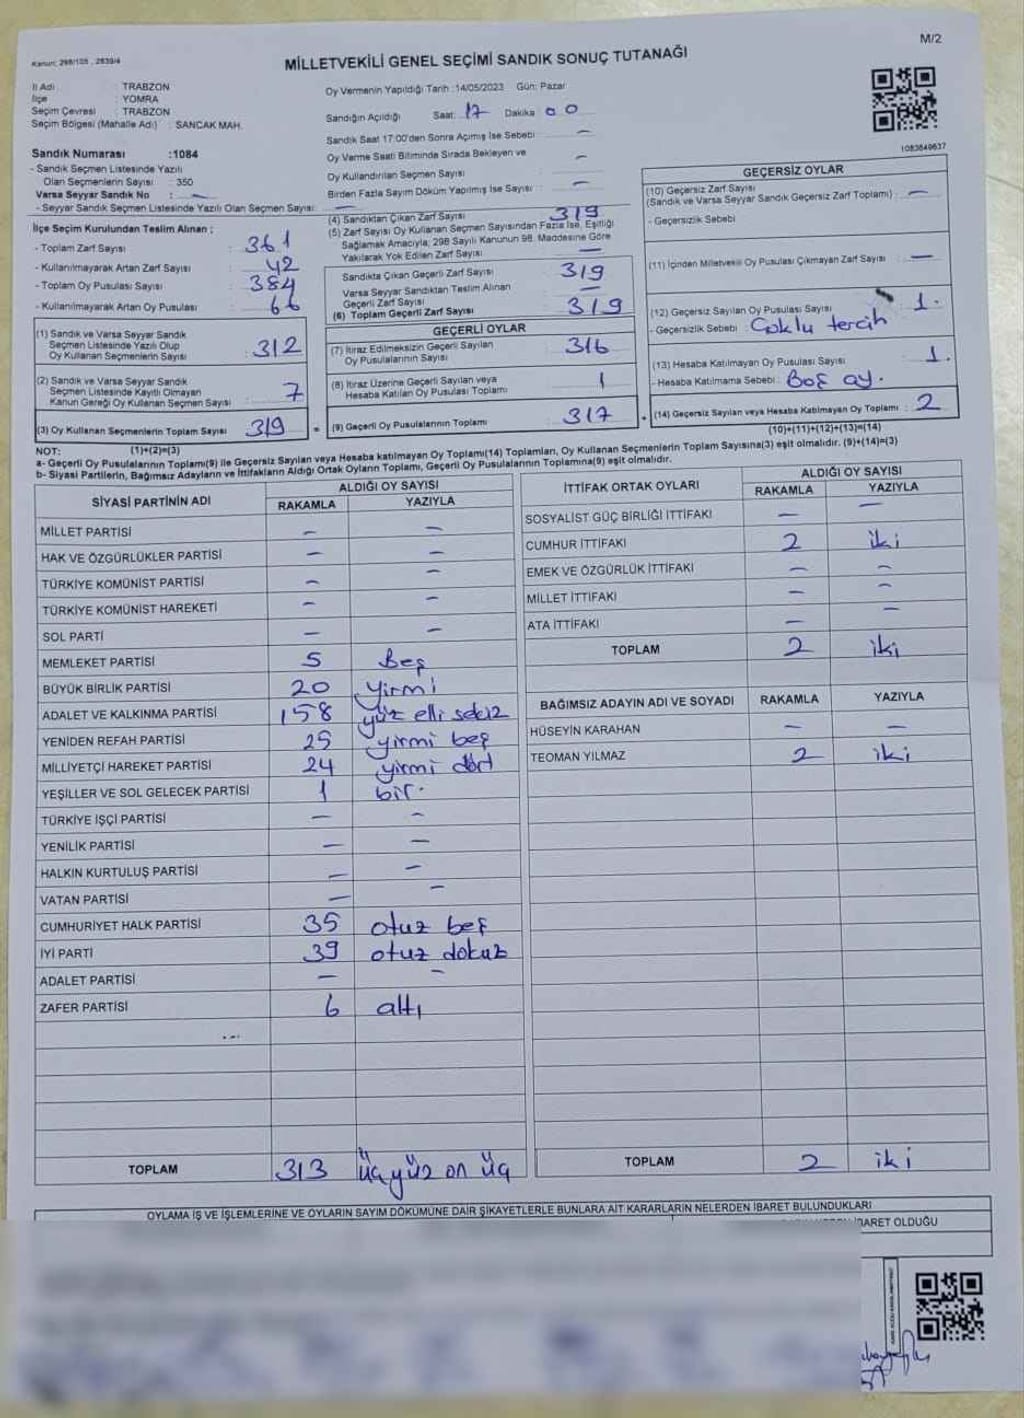 M/2
Kanun: 298/105 , 2839/4
MİLLETVEKİLİ GENEL SEÇİMİ SANDIK SONUÇ TUTANAĞI
İl Adı : TRABZON
İlçe : YOMRA
Seçim Çevresi : TRABZON
Seçim Bölgesi (Mahalle Adı) : SANCAK MAH.
Sandık Numarası :1084
- Sandık Seçmen Listesinde Yazılı
Olan Seçmenlerin Sayısı : 350
Varsa Seyyar Sandık No : -
- Seyyar Sandık Seçmen Listesinde Yazılı Olan Seçmen Sayısı: -
İlçe Seçim Kurulundan Teslim Alınan ;
- Toplam Zarf Sayısı : 361
- Kullanılmayarak Artan Zarf Sayısı : 42
- Toplam Oy Pusulası Sayısı : 384
- Kullanılmayarak Artan Oy Pusulası : 66
(1) Sandık ve Varsa Seyyar Sandık
Seçmen Listesinde Yazılı Olup
Oy Kullanan Seçmenlerin Sayısı : 312
(2) Sandık ve Varsa Seyyar Sandık
Seçmen Listesinde Kayıtlı Olmayan
Kanun Gereği Oy Kullanan Seçmen Sayısı : 7
(3) Oy Kullanan Seçmenlerin Toplam Sayısı : 319
Oy Vermenin Yapıldığı Tarih :14/05/2023 Gün: Pazar
Sandığın Açıldığı Saat: 17 Dakika 00
Sandık Saat 17:00'den Sonra Açılmış İse Sebebi : -
Oy Verme Saati Bitiminde Sırada Bekleyen ve
Oy Kullandırılan Seçmen Sayısı : -
Birden Fazla Sayım Döküm Yapılmış İse Sayısı : -
(4) Sandıktan Çıkan Zarf Sayısı : 319
(5) Zarf Sayısı Oy Kullanan Seçmen Sayısından Fazla İse, Eşitliği
Sağlamak Amacıyla; 298 Sayılı Kanunun 98. Maddesine Göre
Yakılarak Yok Edilen Zarf Sayısı : -
Sandıkta Çıkan Geçerli Zarf Sayısı : 319
Varsa Seyyar Sandıktan Teslim Alınan
Geçerli Zarf Sayısı : -
(6) Toplam Geçerli Zarf Sayısı : 319
GEÇERLİ OYLAR
(7) İtiraz Edilmeksizin Geçerli Sayılan
Oy Pusulalarının Sayısı : 316
(8) İtiraz Üzerine Geçerli Sayılan veya
Hesaba Katılan Oy Pusulası Toplamı : 1
= (9) Geçerli Oy Pusulalarının Toplamı : 317
1083849637
GEÇERSİZ OYLAR
(10) Geçersiz Zarf Sayısı
(Sandık ve Varsa Seyyar Sandık Geçersiz Zarf Toplamı) : -
- Geçersizlik Sebebi
(11) İçinden Milletvekili Oy Pusulası Çıkmayan Zarf Sayısı : -
(12) Geçersiz Sayılan Oy Pusulası Sayısı : 1.
- Geçersizlik Sebebi : Çoklu tercih
(13) Hesaba Katılmayan Oy Pusulası Sayısı : 1.
- Hesaba Katılmama Sebebi : Boş oy.
+ (14) Geçersiz Sayılan veya Hesaba Katılmayan Oy Toplamı : 2
(10)+(11)+(12)+(13)=(14)
NOT: (1)+(2)=(3)
a- Geçerli Oy Pusulalarının Toplamı(9) ile Geçersiz Sayılan veya Hesaba katılmayan Oy Toplamı(14) Toplamları, Oy Kullanan Seçmenlerin Toplam Sayısına(3) eşit olmalıdır. (9)+(14)=(3)
b- Siyasi Partilerin, Bağımsız Adayların ve İttifakların Aldığı Ortak Oyların Toplamı, Geçerli Oy Pusulalarının Toplamına(9) eşit olmalıdır.
SİYASİ PARTİNİN ADI ALDIĞI OY SAYISI
RAKAMLA YAZIYLA
MİLLET PARTİSİ - -
HAK VE ÖZGÜRLÜKLER PARTİSİ - -
TÜRKİYE KOMÜNİST PARTİSİ - -
TÜRKİYE KOMÜNİST HAREKETİ - -
SOL PARTİ - -
MEMLEKET PARTİSİ 5 Beş
BÜYÜK BİRLİK PARTİSİ 20 yirmi
ADALET VE KALKINMA PARTİSİ 158 yüz elli sekiz
YENİDEN REFAH PARTİSİ 25 yirmi beş
MİLLİYETÇİ HAREKET PARTİSİ 24 yirmi dört
YEŞİLLER VE SOL GELECEK PARTİSİ 1 bir.
TÜRKİYE İŞÇİ PARTİSİ - -
YENİLİK PARTİSİ - -
HALKIN KURTULUŞ PARTİSİ - -
VATAN PARTİSİ - -
CUMHURİYET HALK PARTİSİ 35 otuz beş
İYİ PARTİ 39 otuz dokuz
ADALET PARTİSİ - -
ZAFER PARTİSİ 6 altı
TOPLAM 313 üç yüz on üç
İTTİFAK ORTAK OYLARI ALDIĞI OY SAYISI
RAKAMLA YAZIYLA
SOSYALİST GÜÇ BİRLİĞİ İTTİFAKI - -
CUMHUR İTTİFAKI 2 iki
EMEK VE ÖZGÜRLÜK İTTİFAKI - -
MİLLET İTTİFAKI - -
ATA İTTİFAKI - -
TOPLAM 2 iki
BAĞIMSIZ ADAYIN ADI VE SOYADI RAKAMLA YAZIYLA
HÜSEYİN KARAHAN - -
TEOMAN YILMAZ 2 iki
TOPLAM 2 iki
OYLAMA İŞ VE İŞLEMLERİNE VE OYLARIN SAYIM DÖKÜMÜNE DAİR ŞİKAYETLERLE BUNLARA AİT KARARLARIN NELERDEN İBARET BULUNDUKLARI
İBARET OLDUĞU